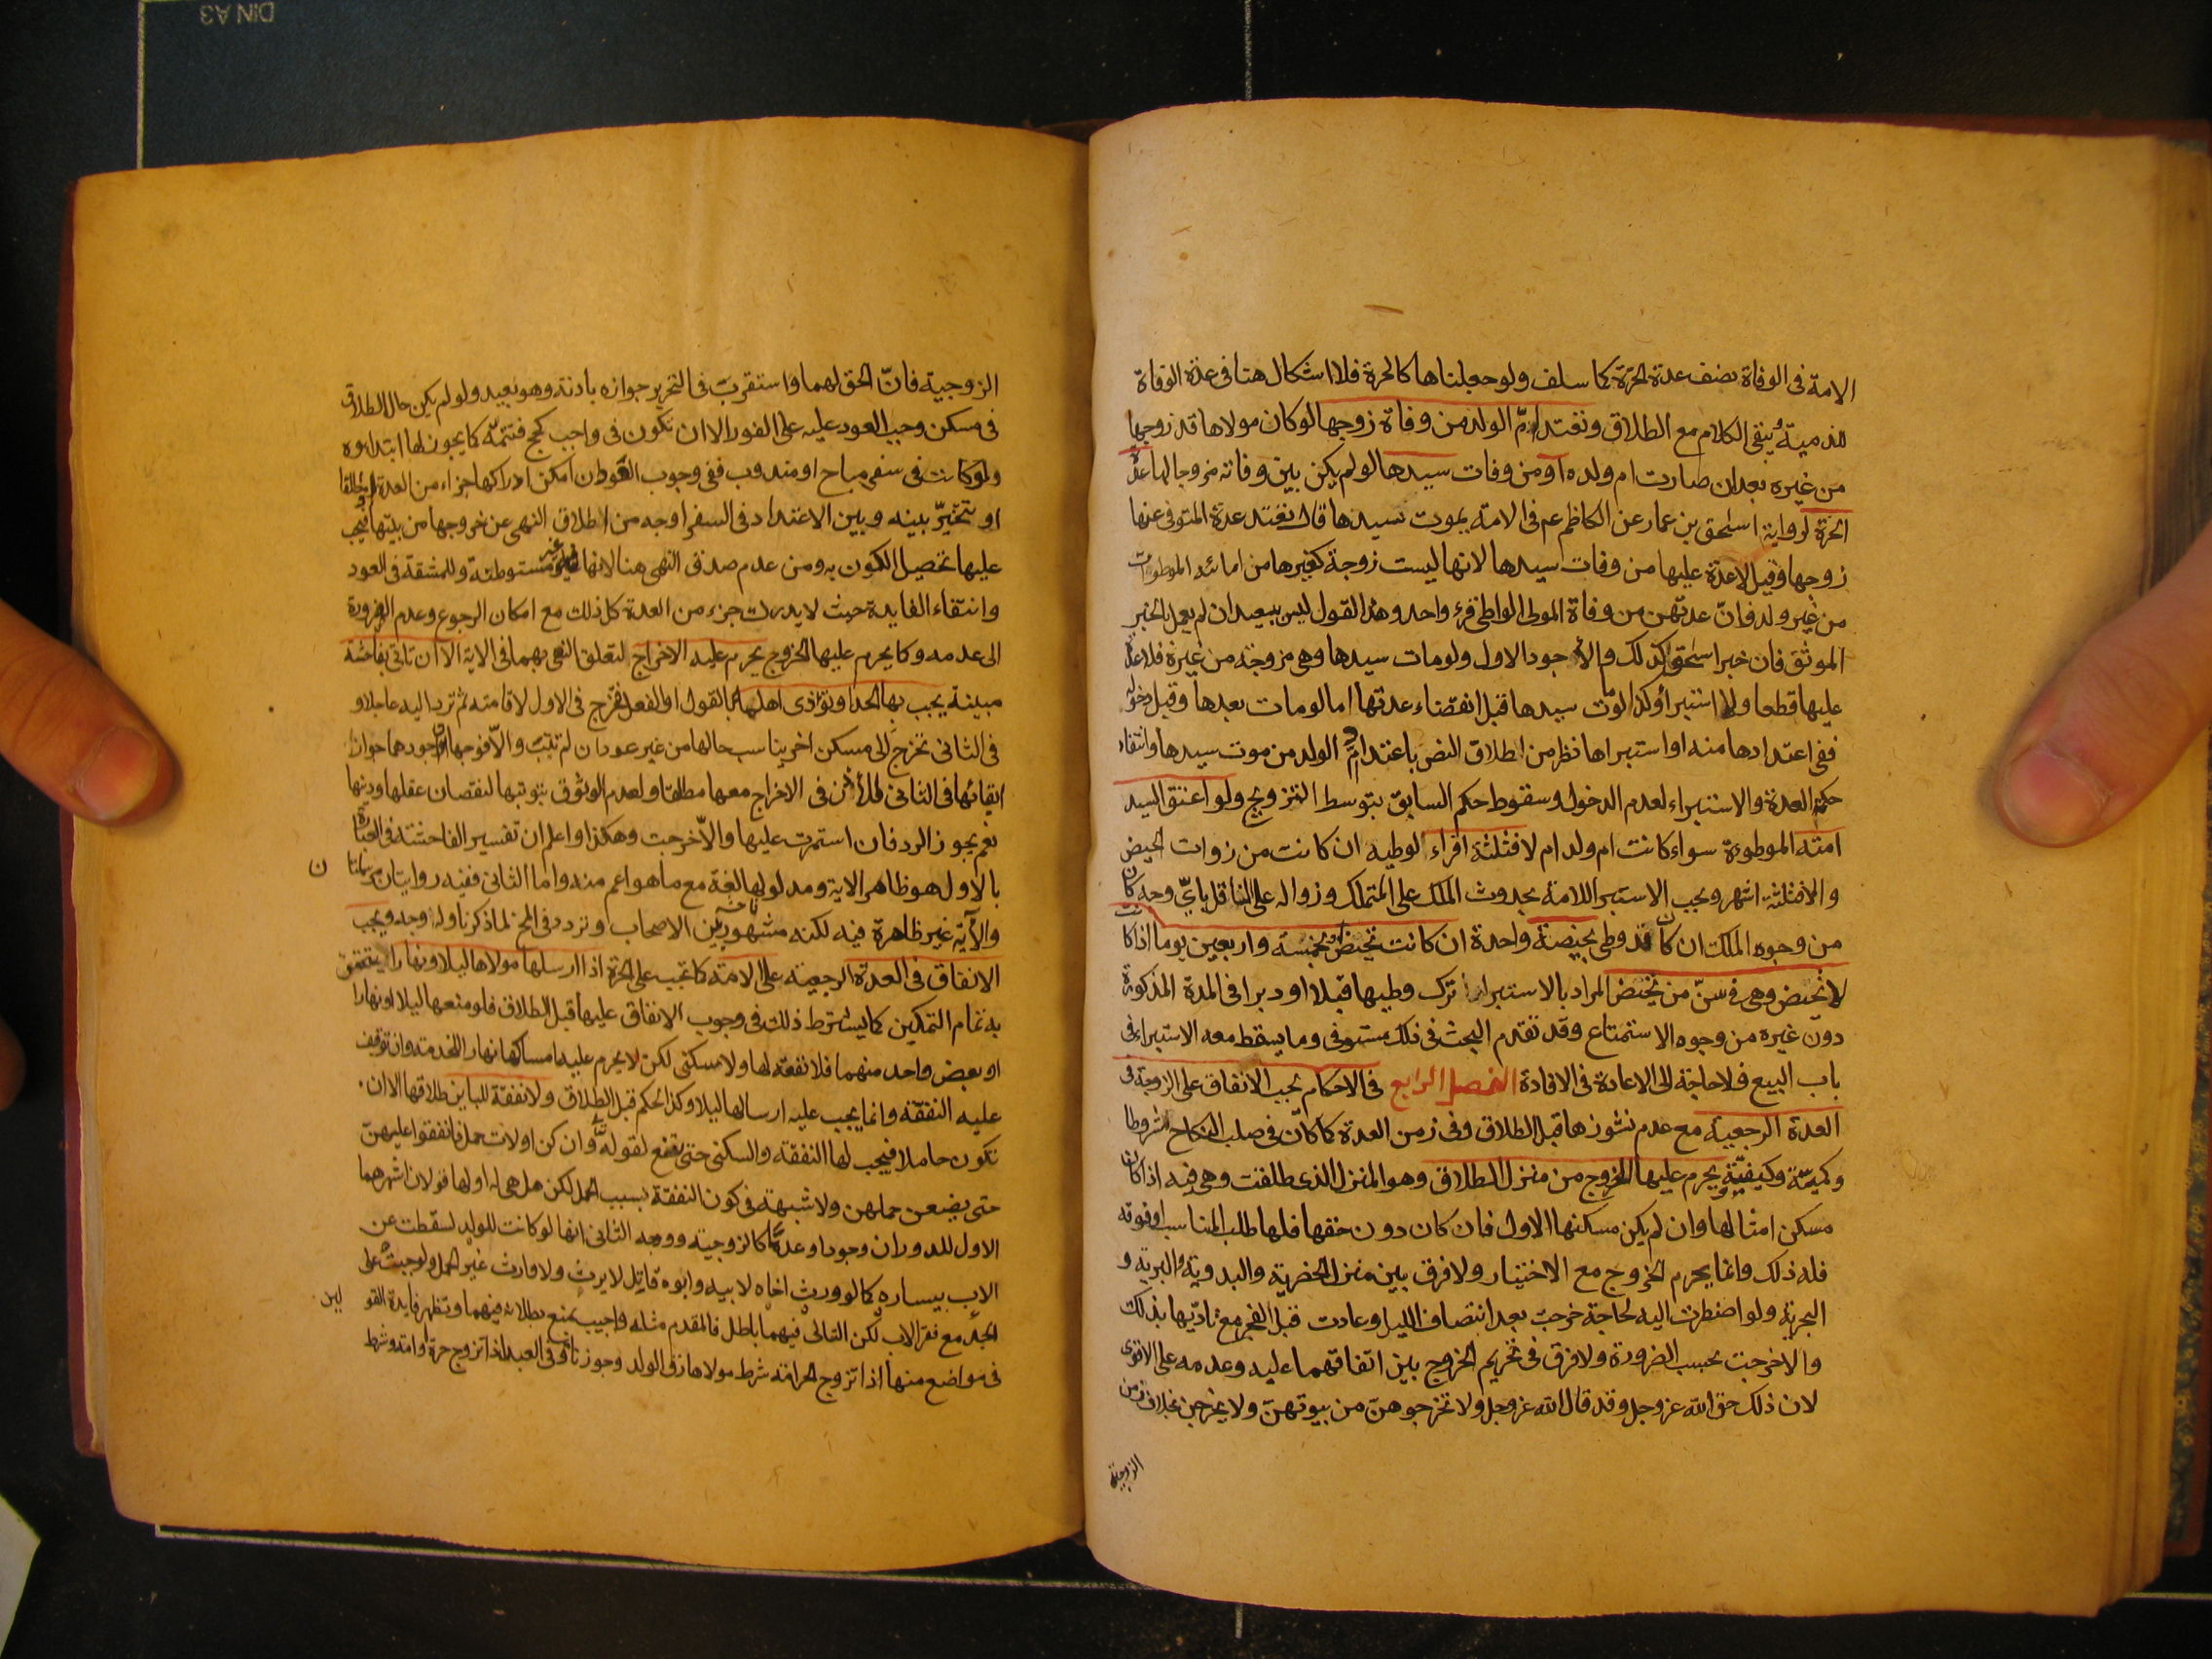 الامة فى الوفاة نصف عدة الحرة كما سلف ولو جعلناها كالحرة فلا اشكال هنا فى عدة الوفاة
للذمية ويبقى الكلام مع الطلاق وتعتد ام الولد من وفاة زوجها لو كان مولاها قد زوجها
من غيره بعد ان صارت ام ولده او من وفات سيدها لو لم يكن بين وفاته مزوجا لها عدة
الحرة لرواية اسحق بن عمار عن الكاظم عم فى الامة يموت سيدها قال تعتد عدة المتوفى عنها
زوجها وقيل لا عدة عليها من وفات سيدها لانها ليست زوجة كغيرها من امائه الموطوات
من غير ولد فان عدتهن من وفاة المولى الواطى قرء واحد وهذا القول ليس ببعيد ان لم يعمل الخبر
الموثق فان خبر اسحق كذلك والاجود الاول ولو مات سيدها وهى مزوجة من غيره فلا عدة
عليها قطعا ولا استبراء وكذا لو مات سيدها قبل انقضاء عدتها اما لو مات بعدها وقبل دخوله
ففى اعتدادها منه او استبراها نظر من اطلاق النص باعتداد ام الولد من موت سيدها وانتفاء
حكمة العدة والاستبراء لعدم الدخول وسقوط حكم السابق بتوسط التزويج ولو اعتق السيد
امته الموطوءة سواء كانت ام ولد ام لا فثلثة اقراء لوطيه ان كانت من زوات الحيض
والا فثلثة اشهر ويجب الاستبراء للامة بحدوث الملك على المتملك وزواله على الناقل باي وجه كان
من وجوه الملك ان كان قد وطى بحيضة واحدة ان كانت تحيض او بخمسة واربعين يوما اذا كانت
لا تحيض وهى فى سن من تحيض المراد بالاستبراء ترك وطيها قبلا او دبرا فى المدة المذكورة
دون غيره من وجوه الاستمتاع وقد تقدم البحث فى ذلك مستوفى وما يسقط معه الاستبراء فى
باب البيع فلا حاجة الى الاعادة فى الافادة الفصل الرابع فى الاحكام يجب الانفاق على الزوجة فى
العدة الرجعية مع عدم نشوزها قبل الطلاق وفى زمن العدة كما كان فى صلب النكاح شروطا
وكمية وكيفية ويحرم عليها الخروج من منزل الطلاق وهو المنزل الذى طلقت وهى فيه اذا كان
مسكن امثالها وان لم يكن مسكنها الاول فان كان دون حقها فلها طلب المناسب او فوقه
فله ذلك وانما يحرم الخروج مع الاختيار ولا فرق بين منزل الحضرية والبدوية والبرية و
البحرية ولو اضطرت اليه لحاجة خرجت بعد انتصاف الليل وعادت قبل الفجر مع تاديها بذلك
والا خرجت بحسب الضرورة ولا فرق فى تحريم الخروج بين اتفاقهما عليه وعدمه على الاقوى
لان ذلك حق الله عز وجل وقد قال الله عز وجل ولا تخرجوهن من بيوتهن ولا يخرجن بخلاف زمن
الزوجية
الزوجية فان الحق لهما واستقرب فى التحرير جوازه باذنه وهو بعيد ولو لم يكن حال الطلاق
فى مسكن وجب العود عليه على الفور الا ان تكون فى واجب كحج فتتمه كما يجوز لها ابتداؤه
ولو كانت فى سفر مباح او مندوب ففى وجوب العود ان امكن ادراكها جزاء من العدة او مطلقا
او تتخير بينه وبين الاعتداد فى السفر اوجه من اطلاق النهى عن خروجها من بيتها فيجب
عليها تحصيل الكون به ومن عدم صدق النهى هنا لانها غير مستوطنة وللمشقة فى العود
وانتفاء الفايدة حيث لا يدرك جزء من العدة كل ذلك مع امكان الرجوع وعدم الضرورة
الى عدمه وكما يحرم عليها الخروج يحرم عليه الاخراج لتعلق النهى بهما فى الاية الا ان تاتى بفاحشة
مبينة يجب بها الحد او تؤذى اهله بالقول او الفعل فتخرج فى الاول لاقامته ثم ترد اليه عاجلا و
فى الثانى تخرج الى مسكن اخر يناسب حالها من غير عود ان لم تتب والا فوجهان اجودهما جواز
ابقائها فى الثانى للاذن فى الاخراج معها مطلقا ولعدم الوثوق بتوبتها لنقصان عقلها ودينها
نعم يجوز الرد فان استمرت عليها والا خرجت وهكذا واعلم ان تفسير الفاحشة فى العبارة
بالاول هو ظاهر الاية ومدلولها لغة مع ما هو اعم منه واما الثانى ففيه روايتان مرسلتان
والاية غير ظاهرة فيه لكنه مشهور بين الاصحاب وتردد فى المخ لما ذكرنا وله وجه ويجب
الانفاق فى العدة الرجعية على الامة كما تجب على الحرة اذا ارسلها مولاها ليلا ونهارا ليتحقق
به تمام التمكين كما يشترط ذلك فى وجوب الانفاق عليها قبل الطلاق فلو منعها ليلا او نهارا
او بعض واحد منهما فلا نفقة لها ولا سكنى لكن لا يحرم عليه امساكها نهارا للخدمة وان توقف
عليه النفقة وانما يجب عليه ارسالها ليلا وكذا الحكم قبل الطلاق ولا نفقة للباين طلاقها الا ان
تكون حاملا فيجب لها النفقة والسكنى حتى تضع لقوله تع وان كن اولات حمل فانفقوا عليهن
حتى يضعن حملهن ولا شبهة فى كون النفقة بسبب الحمل لكن هل هى له او لها قولان اشهرهما
الاول للدوران وجودا وعدما كالزوجية ووجه الثانى انها لو كانت للولد لسقطت عن
الاب بيساره كما لو ورث اخاه لابيه وابوه قاتل لا يرث ولا وارث غير الحمل ولوجبت على
الجد مع فقر الاب لكن التالى فيهما باطل فالمقدم مثله واجيب بمنع بطلانه فيهما وتظهر فايدة القولين
فى مواضع منها اذا تزوج الحر امة شرط مولاها رق الولد وجوزناه وفى العبد اذا تزوج حرة او امة وشرط